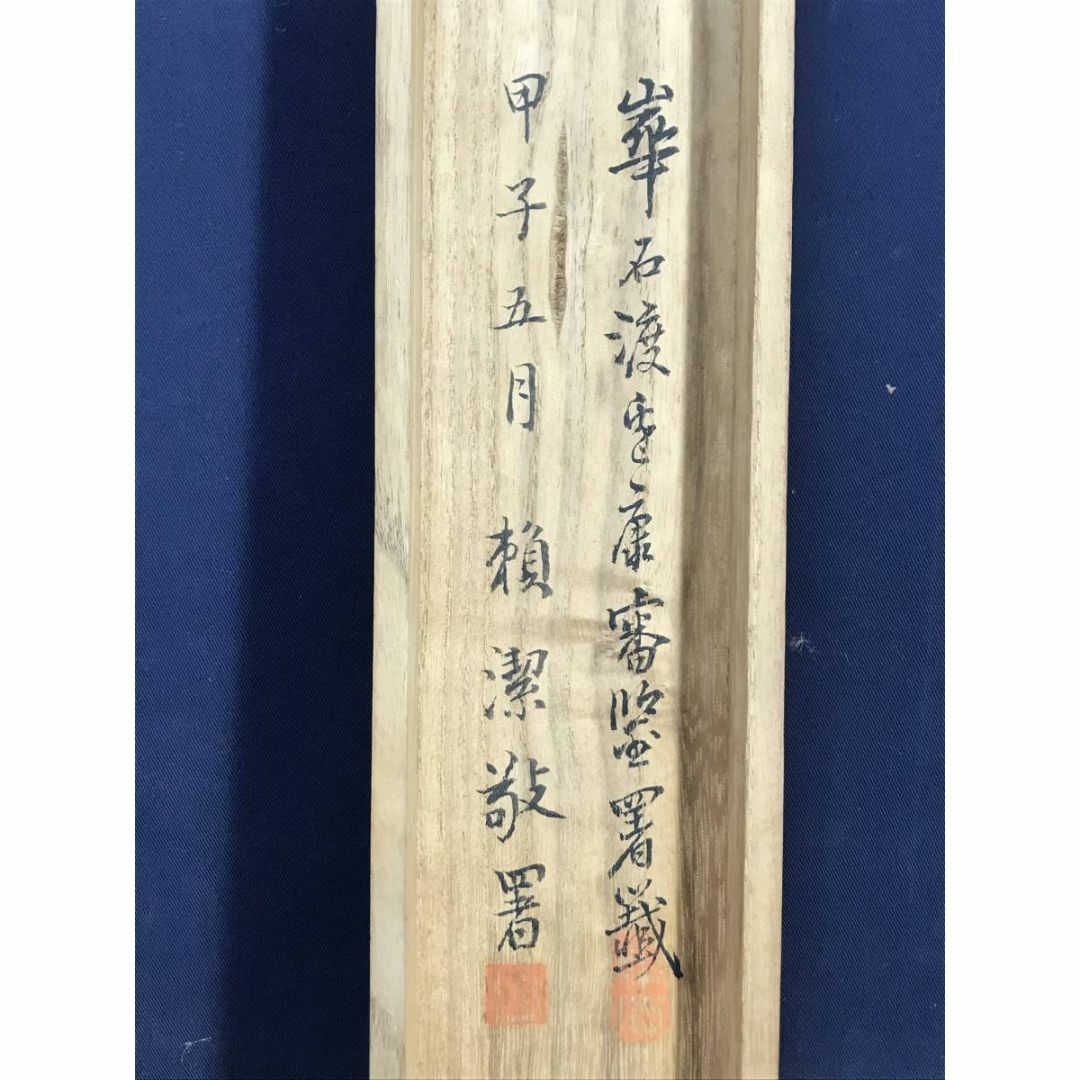 崋石渡邊康審鑒署籤
甲子五月 賴潔敬署